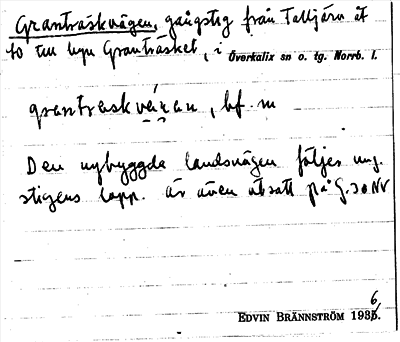 Granträskvägen, gångstig från Talljärn åt
so till byn Granträsket, i Överkalix sn o. tg. Norrb. l.
grantraskvä́ᶇan, bf. m
Den nybyggda landsvägen följer ung.
stigens lopp. Är även utsatt på G. 30 NV
EDVIN BRÄNNSTRÖM 1936.